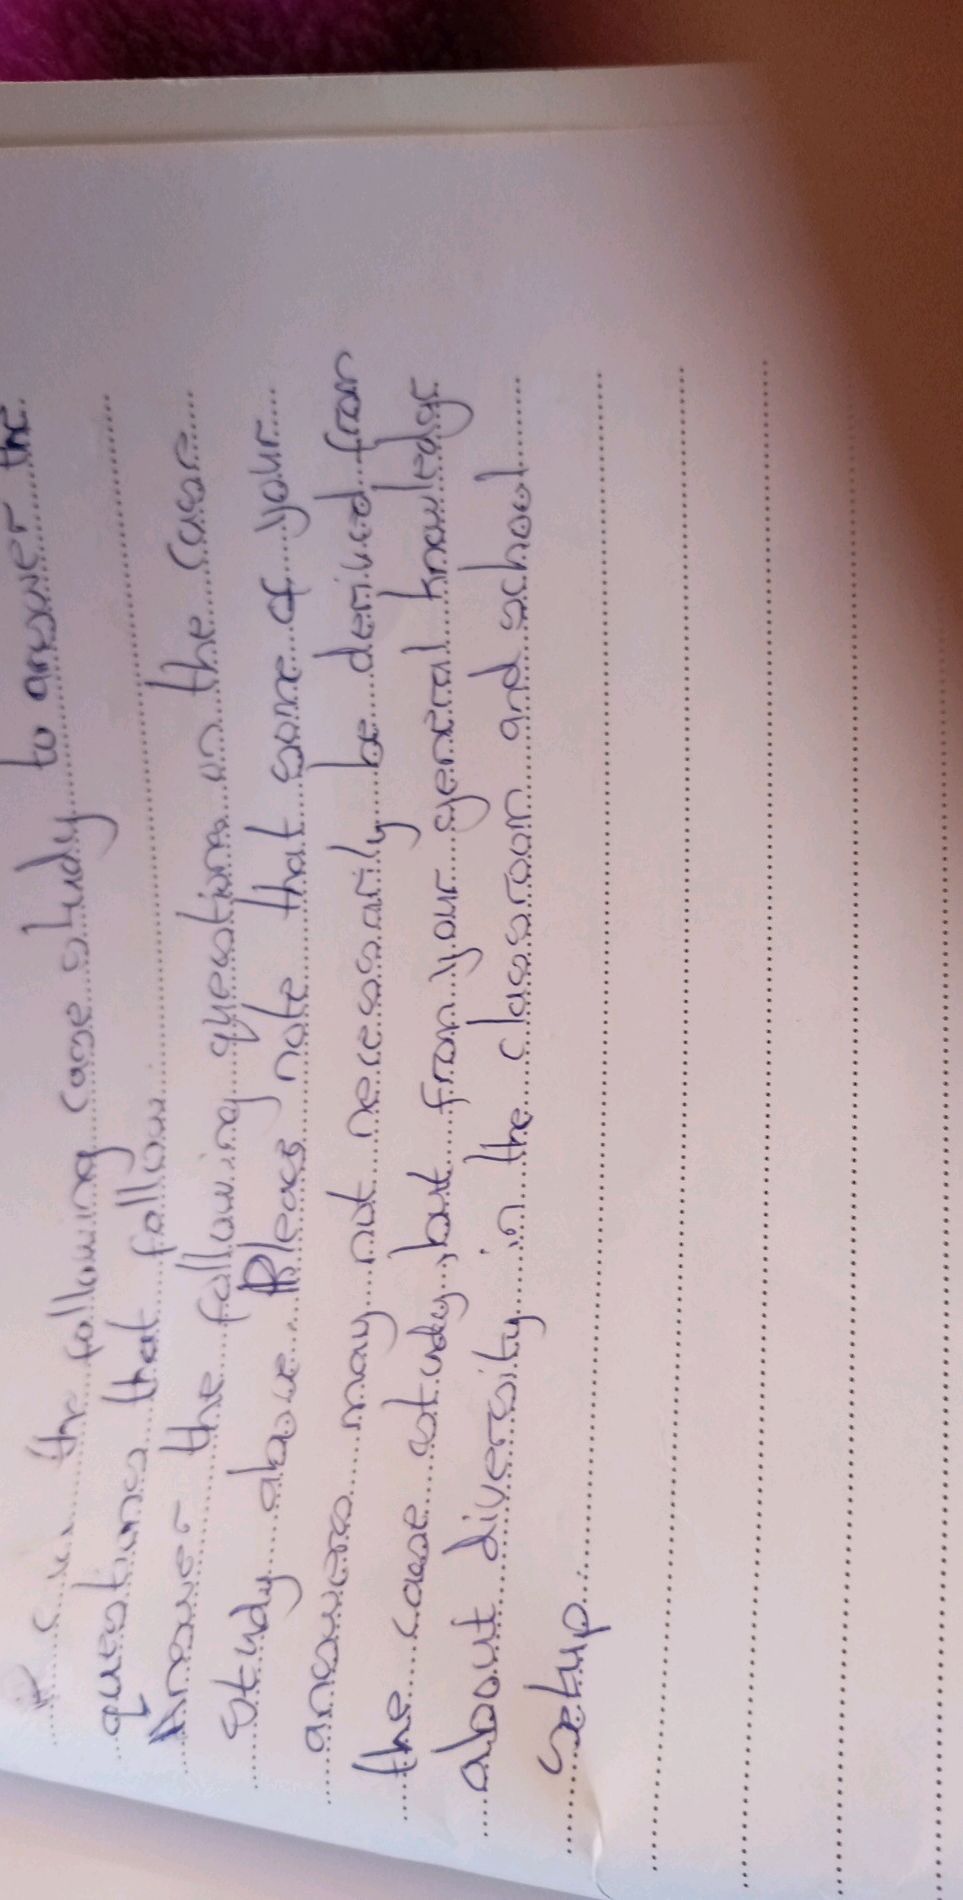 the following case study to answer the
questions that follow.
Answer the following questions on the case
study above. Pleas note that some of your
answers may not necessarily be derived from
the case study, but from your general knowledge
about diversity in the classroom and school
setup.